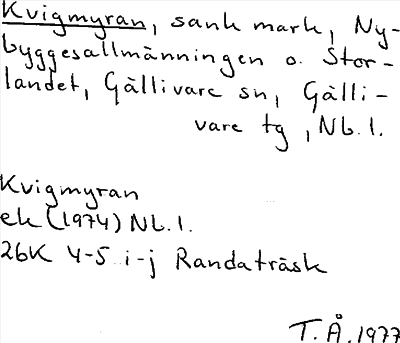 Kvigmyran, sank mark, Ny-
byggesallmänningen o. Stor-
landet, Gällivare sn, Gälli-
vare tg, Nb. l.
Kvigmyran
ek (1974) Nb. l.
26K 4-5 i-j Randaträsk
T. Å. 1977